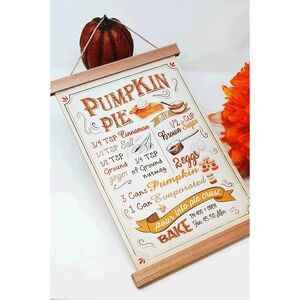 PUMPKIN
PIE
3/4 TSP Cinnamon
1/2 TSP Salt
1/2 CUP
Brown Sugar
1/2 TSP
Ground
ginger
1/4 TSP
of Ground
nutmeg
2 eggs
3 Cans Pumpkin
1 Can Evaporated
pour into pie crust
BAKE
For 45-50 Min